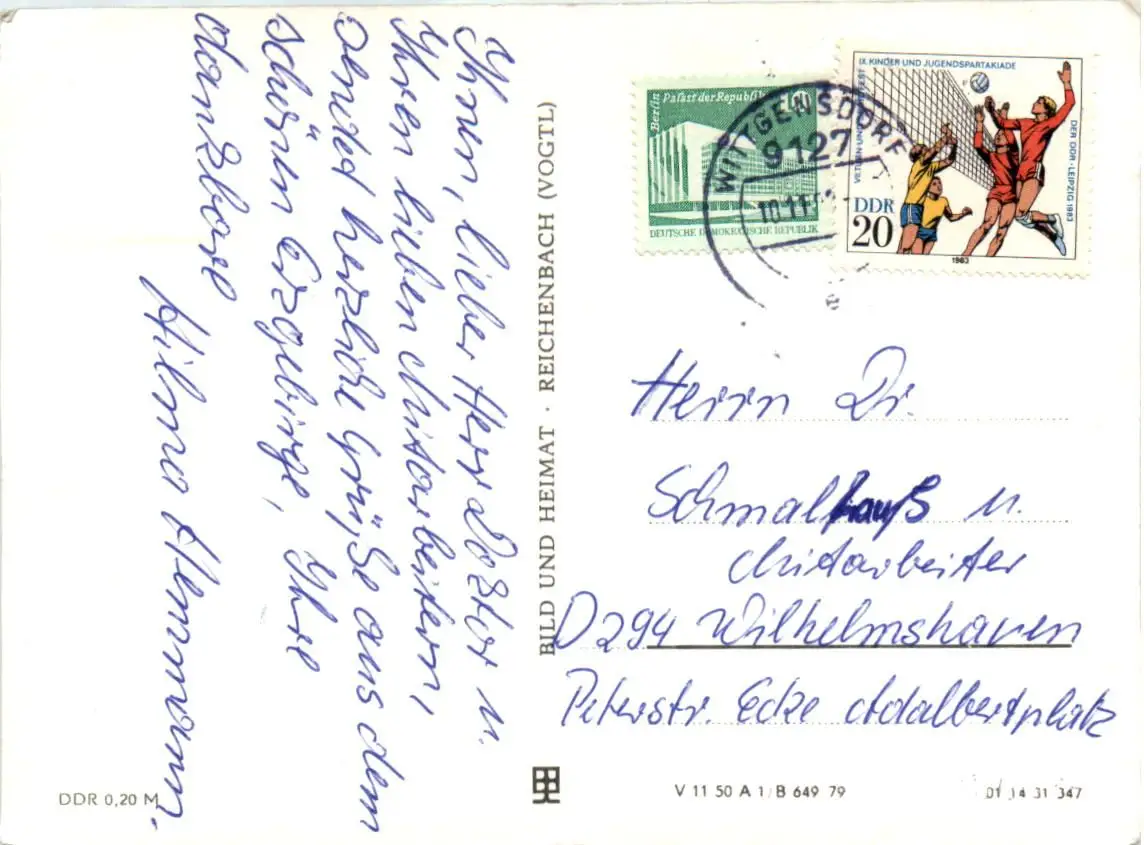 Ihnen, lieber Herr Doktor u.
Ihren lieben Mitarbeitern,
sendet herzliche Grüße aus dem
schönen Erzgebirge, Ihre
dankbare
Hilma Hemmann.
BILD UND HEIMAT · REICHENBACH (VOGTL)
Berlin Palast der Republik 10
DEUTSCHE DEMOKRATISCHE REPUBLIK
WITTGENSDORF
9127
10.11.
IX. KINDER UND JUGENDSPARTAKIADE
VII. TURN- UND SPORTFEST
DER DDR · LEIPZIG 1983
DDR
20
1983
Herrn Dr.
Schmalhauß u.
Mitarbeiter
D 294 Wilhelmshaven
Peterstr. Ecke Adalbertplatz
DDR 0,20 M
V 11 50 A 1/B 649 79
01 14 31 347